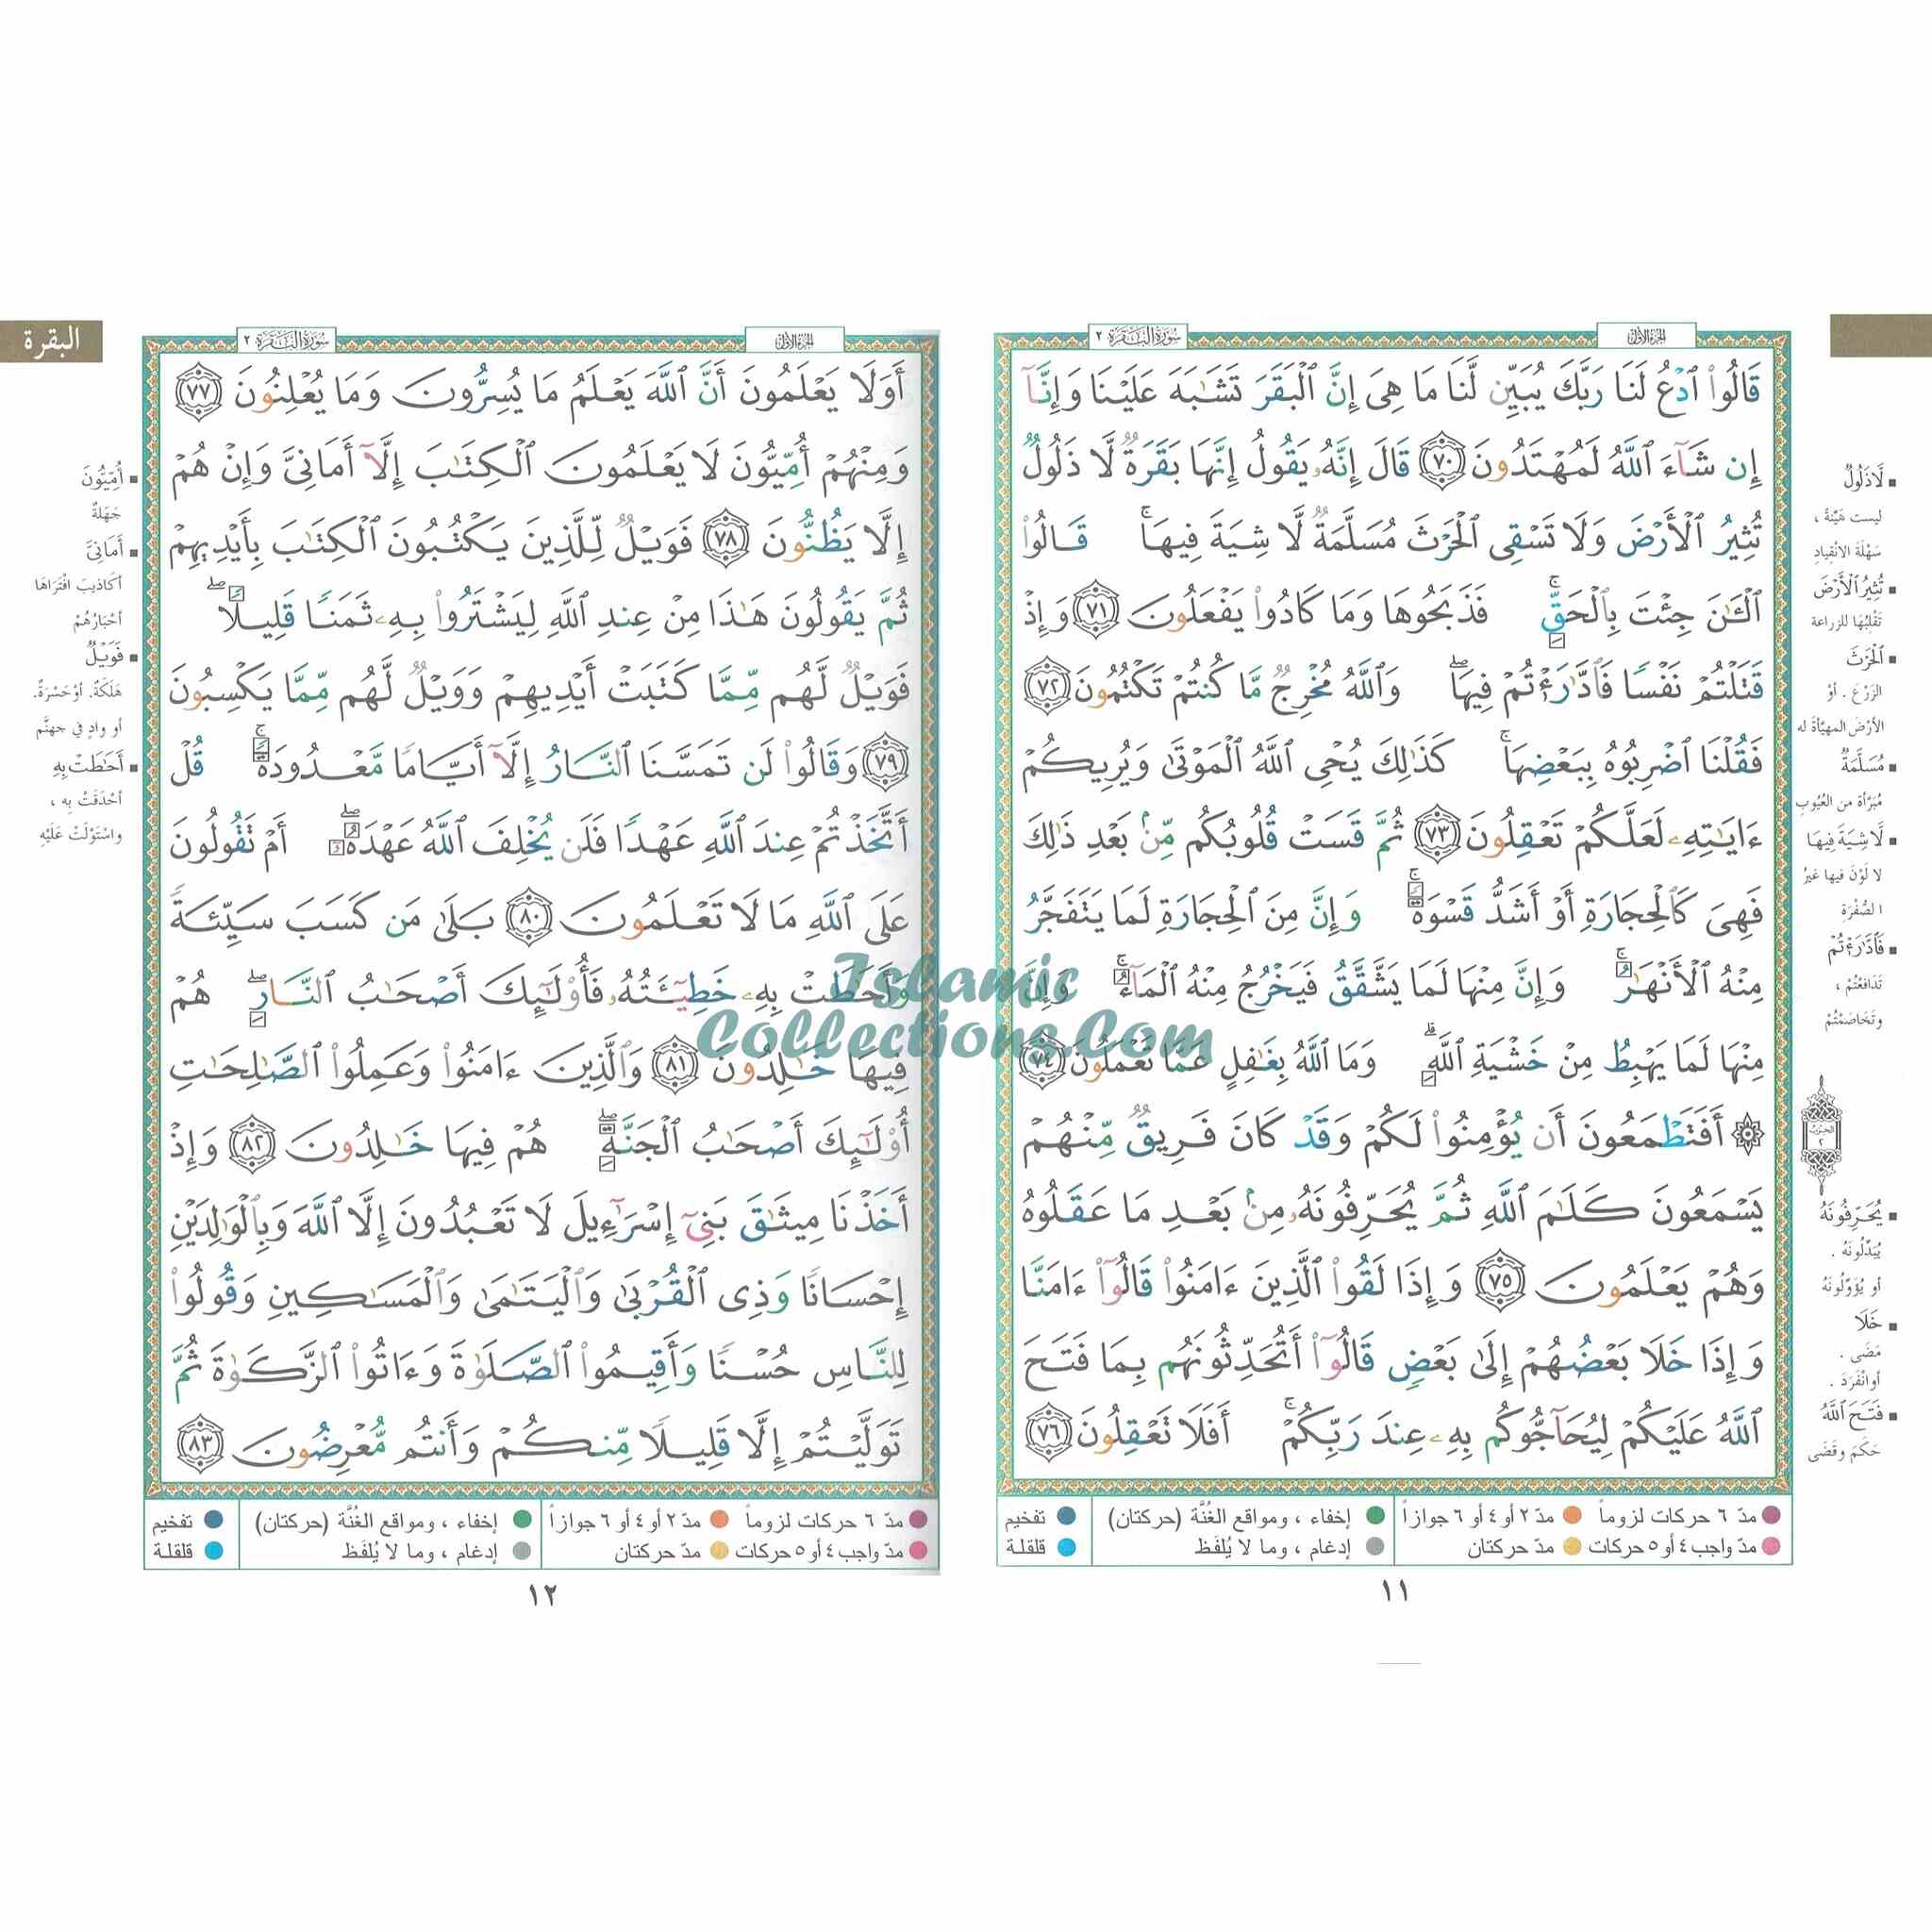 الجزء الأول
سورة البقرة ٢
قَالُوا۟ ٱدۡعُ لَنَا رَبَّكَ يُبَيِّن لَّنَا مَا هِىَ إِنَّ ٱلۡبَقَرَ تَشَـٰبَهَ عَلَيۡنَا وَإِنَّآ
إِن شَآءَ ٱللَّهُ لَمُهۡتَدُونَ ٧٠ قَالَ إِنَّهُۥ يَقُولُ إِنَّهَا بَقَرَةٌ لَّا ذَلُولٌ
تُثِيرُ ٱلۡأَرۡضَ وَلَا تَسۡقِى ٱلۡحَرۡثَ مُسَلَّمَةٌ لَّا شِيَةَ فِيهَاۚ قَالُوا۟
ٱلۡـَٔـٰنَ جِئۡتَ بِٱلۡحَقِّۚ فَذَبَحُوهَا وَمَا كَادُوا۟ يَفۡعَلُونَ ٧١ وَإِذۡ
قَتَلۡتُمۡ نَفۡسًا فَٱدَّٰرَٰٔتُمۡ فِيهَاۖ وَٱللَّهُ مُخۡرِجٌ مَّا كُنتُمۡ تَكۡتُمُونَ ٧٢
فَقُلۡنَا ٱضۡرِبُوهُ بِبَعۡضِهَاۚ كَذَٰلِكَ يُحۡىِ ٱللَّهُ ٱلۡمَوۡتَىٰ وَيُرِيكُمۡ
ءَايَـٰتِهِۦ لَعَلَّكُمۡ تَعۡقِلُونَ ٧٣ ثُمَّ قَسَتۡ قُلُوبُكُم مِّنۢ بَعۡدِ ذَٰلِكَ
فَهِىَ كَٱلۡحِجَارَةِ أَوۡ أَشَدُّ قَسۡوَةًۚ وَإِنَّ مِنَ ٱلۡحِجَارَةِ لَمَا يَتَفَجَّرُ
مِنۡهُ ٱلۡأَنۡهَـٰرُۚ وَإِنَّ مِنۡهَا لَمَا يَشَّقَّقُ فَيَخۡرُجُ مِنۡهُ ٱلۡمَآءُۚ وَإِنَّ
مِنۡهَا لَمَا يَهۡبِطُ مِنۡ خَشۡيَةِ ٱللَّهِۗ وَمَا ٱللَّهُ بِغَـٰفِلٍ عَمَّا تَعۡمَلُونَ ٧٤
۞ أَفَتَطۡمَعُونَ أَن يُؤۡمِنُوا۟ لَكُمۡ وَقَدۡ كَانَ فَرِيقٌ مِّنۡهُمۡ
يَسۡمَعُونَ كَلَـٰمَ ٱللَّهِ ثُمَّ يُحَرِّفُونَهُۥ مِنۢ بَعۡدِ مَا عَقَلُوهُ
وَهُمۡ يَعۡلَمُونَ ٧٥ وَإِذَا لَقُوا۟ ٱلَّذِينَ ءَامَنُوا۟ قَالُوٓا۟ ءَامَنَّا
وَإِذَا خَلَا بَعۡضُهُمۡ إِلَىٰ بَعۡضٍ قَالُوٓا۟ أَتُحَدِّثُونَهُم بِمَا فَتَحَ
ٱللَّهُ عَلَيۡكُمۡ لِيُحَآجُّوكُم بِهِۦ عِندَ رَبِّكُمۡۚ أَفَلَا تَعۡقِلُونَ ٧٦
لَا ذَلُولٌ
ليست هَيِّنَةً ،
سَهْلَةَ الانْقِيادِ
تُثِيرُ ٱلۡأَرۡضَ
تَقْلِبُهَا للزراعة
ٱلۡحَرۡثَ
الزَّرْعَ . أوْ
الأرْضَ المهيَّأةَ له
مُسَلَّمَةٌ
مُبَرَّأة من العُيُوبِ
لَا شِيَةَ فِيهَا
لا لَوْنَ فيها غيرُ
الصُّفْرَةِ
فَٱدَّٰرَٰٔتُمۡ
تَدَافَعْتُمْ ،
وتَخَاصَمْتُمْ
الحزب
٢
يُحَرِّفُونَهُ
يُبَدِّلُونَهُ .
أو يُؤَوِّلُونَهُ
خَلَا
مَضَى .
أو انْفَرَدَ .
فَتَحَ ٱللَّهُ
حَكَمَ وقَضَى
مدّ ٦ حركات لزوماً مدّ ٢ أو ٤ أو ٦ جوازاً إخفاء ، ومواقع الغُنَّة (حركتان) تفخيم
مدّ واجب ٤ أو ٥ حركات مدّ حركتان إدغام ، وما لا يُلفَظ قلقلة
١١
البقرة
الجزء الأول
سورة البقرة ٢
أَوَلَا يَعۡلَمُونَ أَنَّ ٱللَّهَ يَعۡلَمُ مَا يُسِرُّونَ وَمَا يُعۡلِنُونَ ٧٧
وَمِنۡهُمۡ أُمِّيُّونَ لَا يَعۡلَمُونَ ٱلۡكِتَـٰبَ إِلَّآ أَمَانِىَّ وَإِنۡ هُمۡ
إِلَّا يَظُنُّونَ ٧٨ فَوَيۡلٌ لِّلَّذِينَ يَكۡتُبُونَ ٱلۡكِتَـٰبَ بِأَيۡدِيهِمۡ
ثُمَّ يَقُولُونَ هَـٰذَا مِنۡ عِندِ ٱللَّهِ لِيَشۡتَرُوا۟ بِهِۦ ثَمَنًا قَلِيلًاۖ
فَوَيۡلٌ لَّهُم مِّمَّا كَتَبَتۡ أَيۡدِيهِمۡ وَوَيۡلٌ لَّهُم مِّمَّا يَكۡسِبُونَ
٧٩ وَقَالُوا۟ لَن تَمَسَّنَا ٱلنَّارُ إِلَّآ أَيَّامًا مَّعۡدُودَةًۚ قُلۡ
أَتَّخَذۡتُمۡ عِندَ ٱللَّهِ عَهۡدًا فَلَن يُخۡلِفَ ٱللَّهُ عَهۡدَهُۥٓۖ أَمۡ تَقُولُونَ
عَلَى ٱللَّهِ مَا لَا تَعۡلَمُونَ ٨٠ بَلَىٰ مَن كَسَبَ سَيِّئَةً
وَأَحَـٰطَتۡ بِهِۦ خَطِيٓـَٔتُهُۥ فَأُو۟لَـٰٓئِكَ أَصۡحَـٰبُ ٱلنَّارِۖ هُمۡ
فِيهَا خَـٰلِدُونَ ٨١ وَٱلَّذِينَ ءَامَنُوا۟ وَعَمِلُوا۟ ٱلصَّـٰلِحَـٰتِ
أُو۟لَـٰٓئِكَ أَصۡحَـٰبُ ٱلۡجَنَّةِۖ هُمۡ فِيهَا خَـٰلِدُونَ ٨٢ وَإِذۡ
أَخَذۡنَا مِيثَـٰقَ بَنِىٓ إِسۡرَٰٓءِيلَ لَا تَعۡبُدُونَ إِلَّا ٱللَّهَ وَبِٱلۡوَٰلِدَيۡنِ
إِحۡسَانًا وَذِى ٱلۡقُرۡبَىٰ وَٱلۡيَتَـٰمَىٰ وَٱلۡمَسَـٰكِينِ وَقُولُوا۟
لِلنَّاسِ حُسۡنًا وَأَقِيمُوا۟ ٱلصَّلَوٰةَ وَءَاتُوا۟ ٱلزَّكَوٰةَ ثُمَّ
تَوَلَّيۡتُمۡ إِلَّا قَلِيلًا مِّنكُمۡ وَأَنتُم مُّعۡرِضُونَ ٨٣
أُمِّيُّونَ
جَهَلةٌ
أَمَانِىَّ
أكاذيبَ افْتَراهَا
أحْبَارُهُمْ
فَوَيۡلٌ
هَلَكَةٌ. أوْ حَسْرَةٌ.
أو وادٍ في جهنَّم
أَحَـٰطَتۡ بِهِ
أحْدَقَتْ بِه ،
واسْتَوْلَتْ عَلَيْهِ
مدّ ٦ حركات لزوماً مدّ ٢ أو ٤ أو ٦ جوازاً إخفاء ، ومواقع الغُنَّة (حركتان) تفخيم
مدّ واجب ٤ أو ٥ حركات مدّ حركتان إدغام ، وما لا يُلفَظ قلقلة
١٢
Islamic
Collections.Com